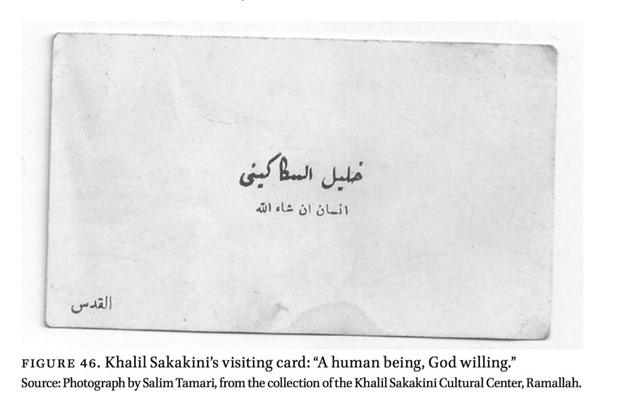 خليل السكاكيني
انسان ان شاء الله
القدس
FIGURE 46. Khalil Sakakini’s visiting card: “A human being, God willing.”
Source: Photograph by Salim Tamari, from the collection of the Khalil Sakakini Cultural Center, Ramallah.